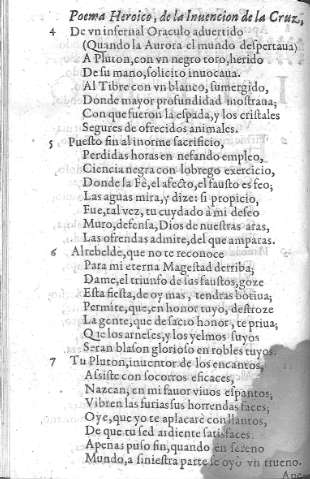 Poema Heroico, de la Inuencion de la Cruz,
4 De vn infernal Oraculo aduertido
(Quando la Aurora el mundo despertaua)
A Pluton, con vn negro toro, herido
De su mano, solicito inuocaua.
Al Tibre con vn blanco, sumergido,
Donde mayor profundidad mostraua;
Con que fueron la espada, y los cristales
Segures de ofrecidos animales.
5 Puesto fin al inorme sacrificio,
Perdidas horas en nefando empleo,
Ciencia negra con lobrego exercicio,
Donde la Fè, el afecto, el fausto es feo;
Las aguas mira, y dize: si propicio,
Fue, tal vez, tu cuydado à mi deseo
Muro, defensa, Dios de nuestras aras,
Las ofrendas admite, del que amparas.
6 Al rebelde, que no te reconoce
Para mi eterna Magestad derriba;
Dame, el triunfo de sus faustos, goze
Esta fiesta, de oy mas, tendras botiua;
Permite, que, en honor tuyo, destroze
La gente, que de sacro honor, te priua;
Que los arneses, y los yelmos suyos
Seran blason glorioso en robles tuyos.
7 Tu Pluton, inuentor de los encantos,
Assiste con socorros eficaces,
Nazcan, en mi fauor viuos espantos,
Vibren las furias sus horrendas faces;
Oye, que yo te aplacarè con llantos,
De que tu sed ardiente satisfaces.
Apenas puso fin, quando en sereno
Mundo, a siniestra parte se oyo vn trueno.